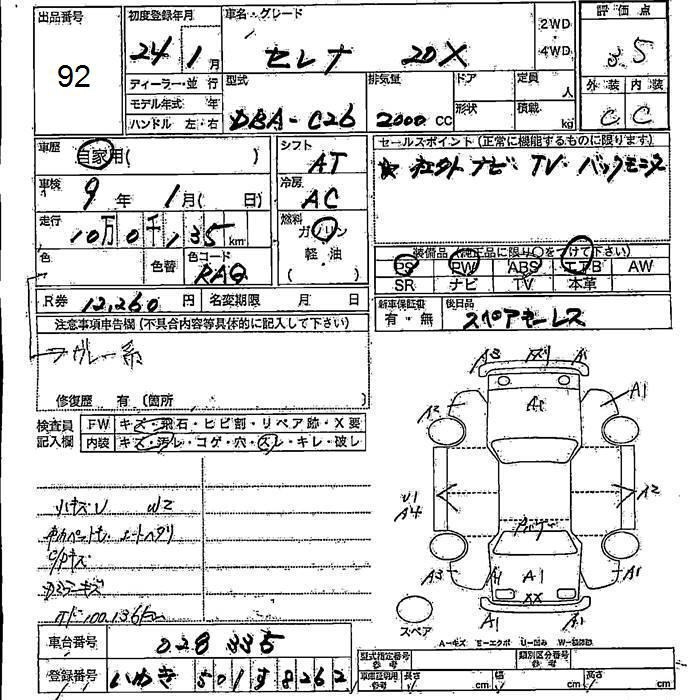 出品番号
92
初度登録年月
24 1月
車名・グレード
セレナ 20X
2WD
・
4WD
評価点
3.5
外装 内装
C C
ディーラー・並行
モデル年式 年
ハンドル 左・右
型式
DBA-C26
排気量
2000 CC
ドア
形状
定員
人
積載
kg
車歴
自家用( )
車検
9年 1月( 日)
走行
10万0千135 km
色
色替
色コード
RAQ
R券 12,260円
名変期限 月 日
シフト
AT
冷房
AC
燃料
ガソリン
軽・油
( )
セールスポイント(正常に機能するものに限ります)
ナビ TV バックモニター
装備品(純正品に限り○をつけて下さい)
PS PW ABS エアB AW
SR ナビ TV 本革
新車保証書
有・無
後日品
スペアキーレス
注意事項申告欄(不具合内容等具体的に記入して下さい)
グレー系
修復歴 有(箇所
検査員
記入欄
FW キズ・飛石・ヒビ割・リペア跡・X要
内装 キズ・汚レ・コゲ・穴・スレ・キレ・破レ
W2
100,136km
A3 A1
A1
A1
A2
U1
A4
A2
A3 A1 A1 A1
XX
A1 A1
スペア
A-キズ E-エクボ U-凹み W-波
車台番号 028335
登録番号 いわき 501 す 8262
型式指定番号
参考
類別区分番号
参考
車庫証明用
参考
長さ cm 幅 cm 高さ cm